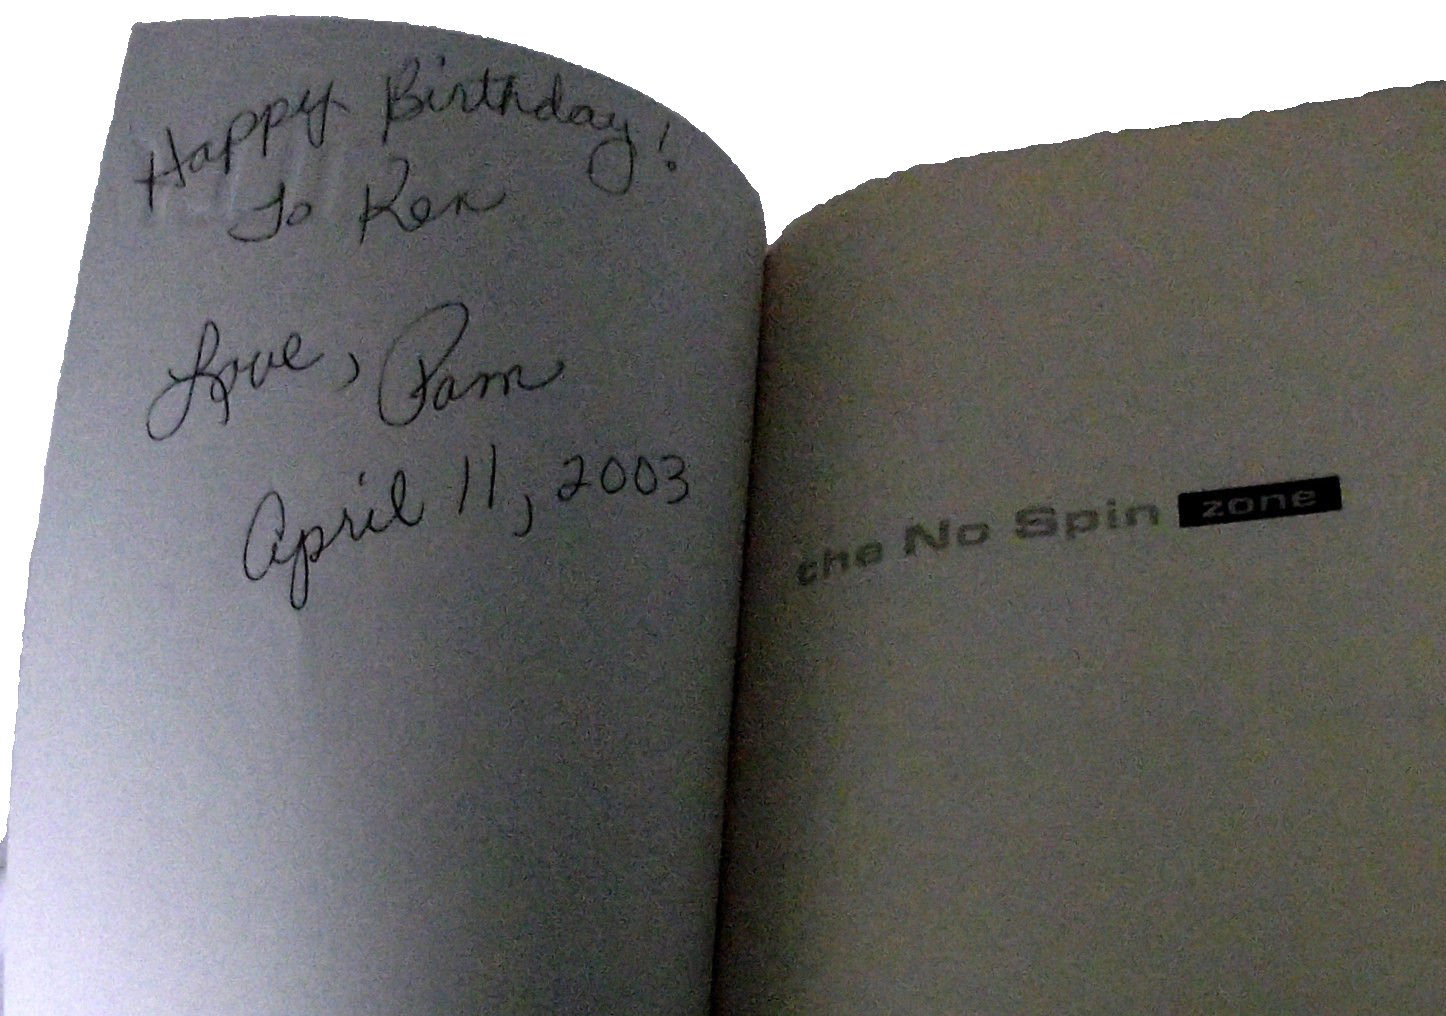 Happy Birthday!
To Ken
Love, Pam
April 11, 2003
the No Spin zone